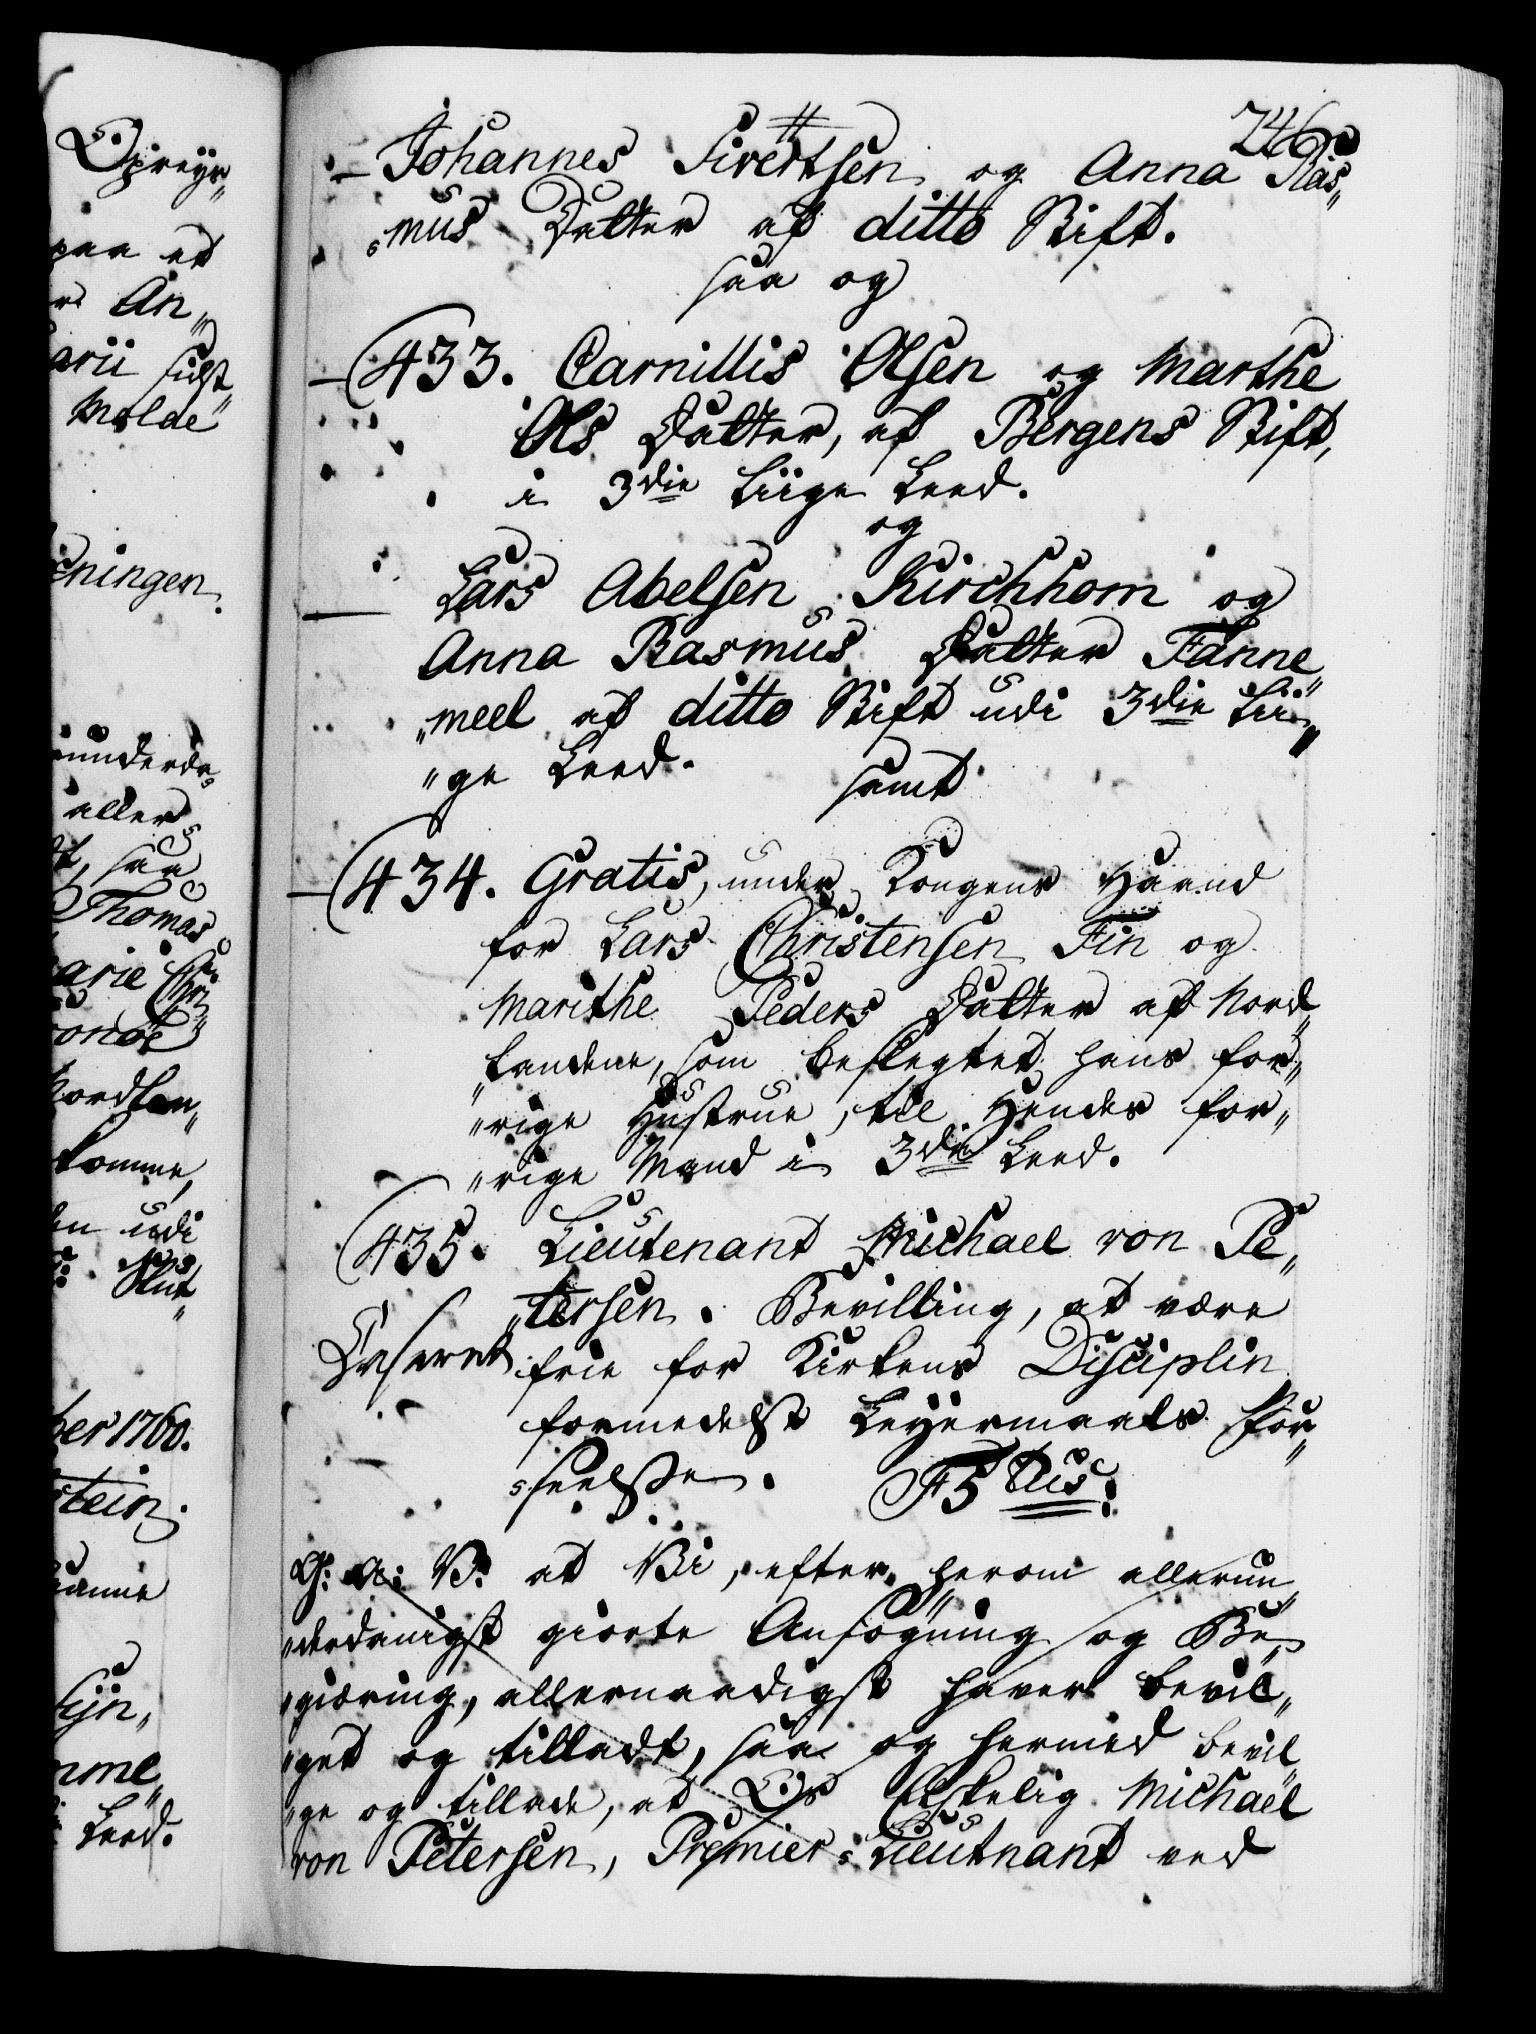 Opreys„
paa et
An„
arii sidst
Molde
eningen.
aller
t, saa
Thomas
arie Chri„
onde
Nordlan„
komme,
en udi
ber 1760.
stein.
ijn„
mme„
Leed.
746
Johannes Sivertsen og Anna Ras„
„mus Datter af ditto Stift.
saa og
433. Carnillis Olsen og Marthe
Ols Datter, af Bergens Stift,
i 3die Liige Leed.
og
Lars Abelsen Kirchhom og
Anna Rasmus Datter Fanne„
„meel af ditto Stift udi 3die Lii„
„ge Leed.
samt
434. Gratis, under Kongens Haand
for Lars Christensen Fin og
Marithe Peders Datter af Nord„
„landene, som beslegtet hans for„
„rige Hustrue, til Hendes for„
„rige Mand i 3die Leed.
435. Lieutenant Michael von Pe„
„tersen. Bevilling, at være
Casseret
frie for Kirkens Disciplin
formedelst Leyermaals For„
„seelse. F5tus:
G: A: V: at Vi, efter herom allerun„
„derdanigst giorte Ansøgning og Be„
„giæring, allernaadigst haver bevil„
„get og tilladt, saa og hermed bevil„
„ge og tillade, at Os Elskelig Michael
von Petersen, Premier-Lieutnant ved